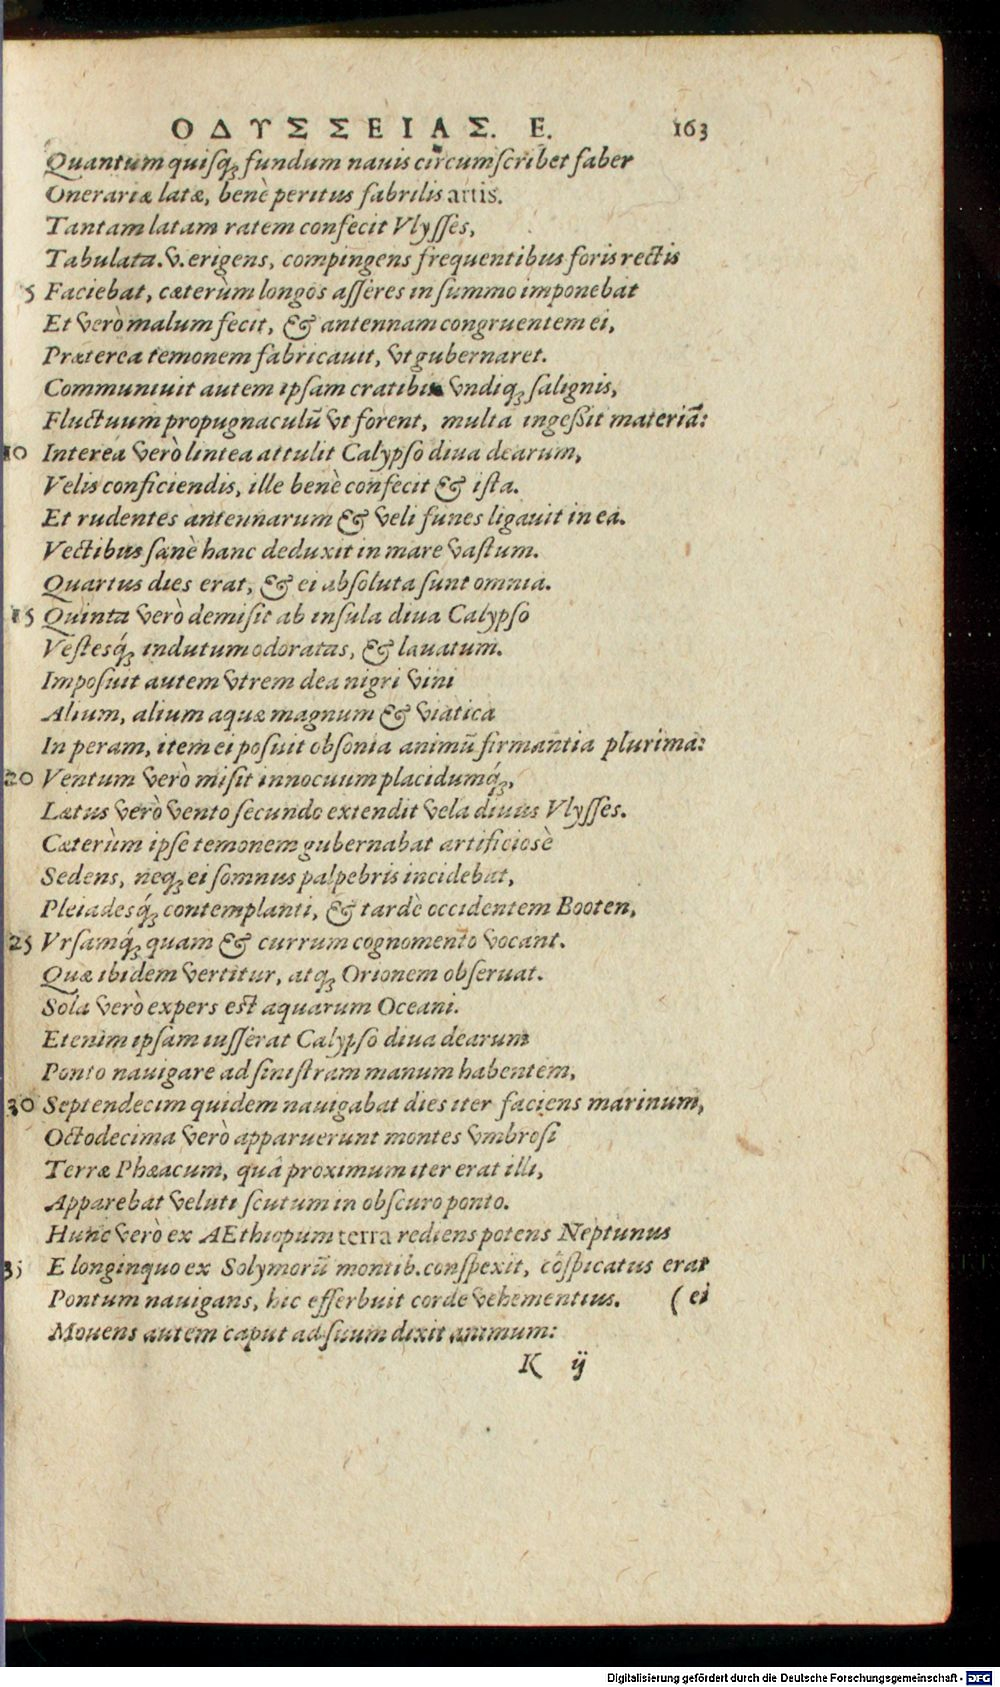 ΟΔΥΣΣΕΙΑΣ. Ε. 163
Quantum quisq; fundum nauis circumscribet faber
Onerariæ latæ, benè peritus fabrilis artis.
Tantam latam ratem confecit Vlysses,
Tabulata.v.erigens, compingens frequentibus foris rectis
5 Faciebat, cæterùm longos asseres in summo imponebat
Et verò malum fecit, & antennam congruentem ei,
Præterea temonem fabricauit, vt gubernaret.
Communiuit autem ipsam cratibus vndiq; salignis,
Fluctuum propugnaculū vt forent, multā ingessit materiā:
10 Interea verò lintea attulit Calypso diua dearum,
Velis conficiendis, ille benè confecit & ista.
Et rudentes antennarum & veli funes ligauit in ea.
Vectibus sanè hanc deduxit in mare vastum.
Quartus dies erat, & ei absoluta sunt omnia.
15 Quinta verò demisit ab insula diua Calypso
Vestesq́; indutum odoratas, & lauatum.
Imposuit autem vtrem dea nigri vini
Alium, alium aquæ magnum & viatica
In peram, item ei posuit obsonia animū firmantia plurima:
20 Ventum verò misit innocuum placidumq́;,
Lætus verò vento secundo extendit vela diuus Vlysses.
Cæterùm ipse temonem gubernabat artificiosè
Sedens, neq; ei somnus palpebris incidebat,
Pleiadesq́; contemplanti, & tardè occidentem Booten,
25 Vrsamq́; quam & currum cognomento vocant.
Quæ ibidem vertitur, atq; Orionem obseruat.
Sola verò expers est aquarum Oceani.
Etenim ipsam iusserat Calypso diua dearum
Ponto nauigare ad sinistram manum habentem,
30 Septendecim quidem nauigabat dies iter faciens marinum,
Octodecima verò apparuerunt montes vmbrosi
Terræ Phæacum, quâ proximum iter erat illi,
Apparebat veluti scutum in obscuro ponto.
Hunc verò ex AEthiopum terra rediens potens Neptunus
35 E longinquo ex Solymorū montib.conspexit, cōspicatus erat
Pontum nauigans, hic efferbuit corde vehementius. (ei
Mouens autem caput ad suum dixit animum:
K ij
Digitalisierung gefördert durch die Deutsche Forschungsgemeinschaft - DFG